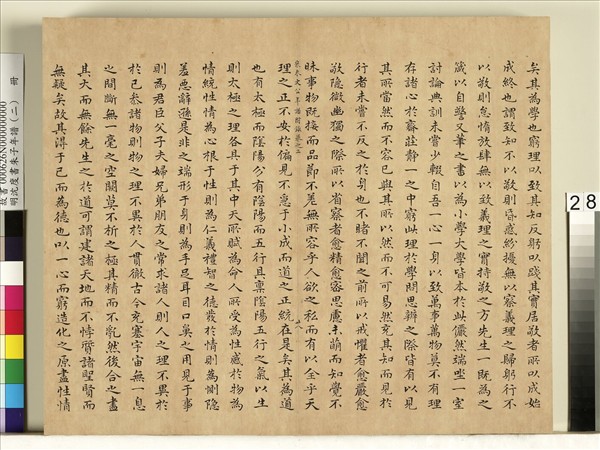 矣其為學也窮理以致其知反躬以踐其實居敬者所以成始
成終也謂致知不以敬則昏惑紛擾無以察義理之歸躬行不
以敬則怠惰放肆無以致義理之實持敬之方先生一既為之
箴以自警又筆之書以為小學大學皆本於此儼然端坐一室
討論典訓未嘗少輟自吾一心一身以致萬事萬物莫不有理
存諸心於齋莊靜一之中窮此理於學問思辨之際皆有以見
其所當然而不容已與其所以然而不可易然充其知而見於
行者未嘗不反之於身也不睹不聞之前所以戒懼者愈嚴愈
敬隱微幽獨之際所以省察者愈精愈密思慮未萌而知覺不
昧事物既接而品節不差無所容乎人欲之私而有以全乎天
理之正不安於偏見不急于小成而道之正統在是矣其為道
也有太極而陰陽分有陰陽而五行具禀陰陽五行之氣以生
則太極之理各具于其中天所賦為命人所受為性感於物為
情統性情為心根于性則為仁義禮智之德發於情則為惻隱
羞惡辭遜是非之端形于身則為手足耳目口鼻之用見于事
則為君臣父子夫婦兄弟朋友之常求諸人則人之理不異於
於己參諸物則物之理不異於人貫徹古今充塞宇宙無一息
之間斷無一毫之空闕莫不析之極其精而不亂然後合之盡
其大而無餘先生之於道可謂建諸天地而不悖質諸聖賢而
無疑矣故其得于己而為德也以一心而窮造化之原盡性情
故書000626N000000000
明沈度書朱子年譜(二) 冊
28